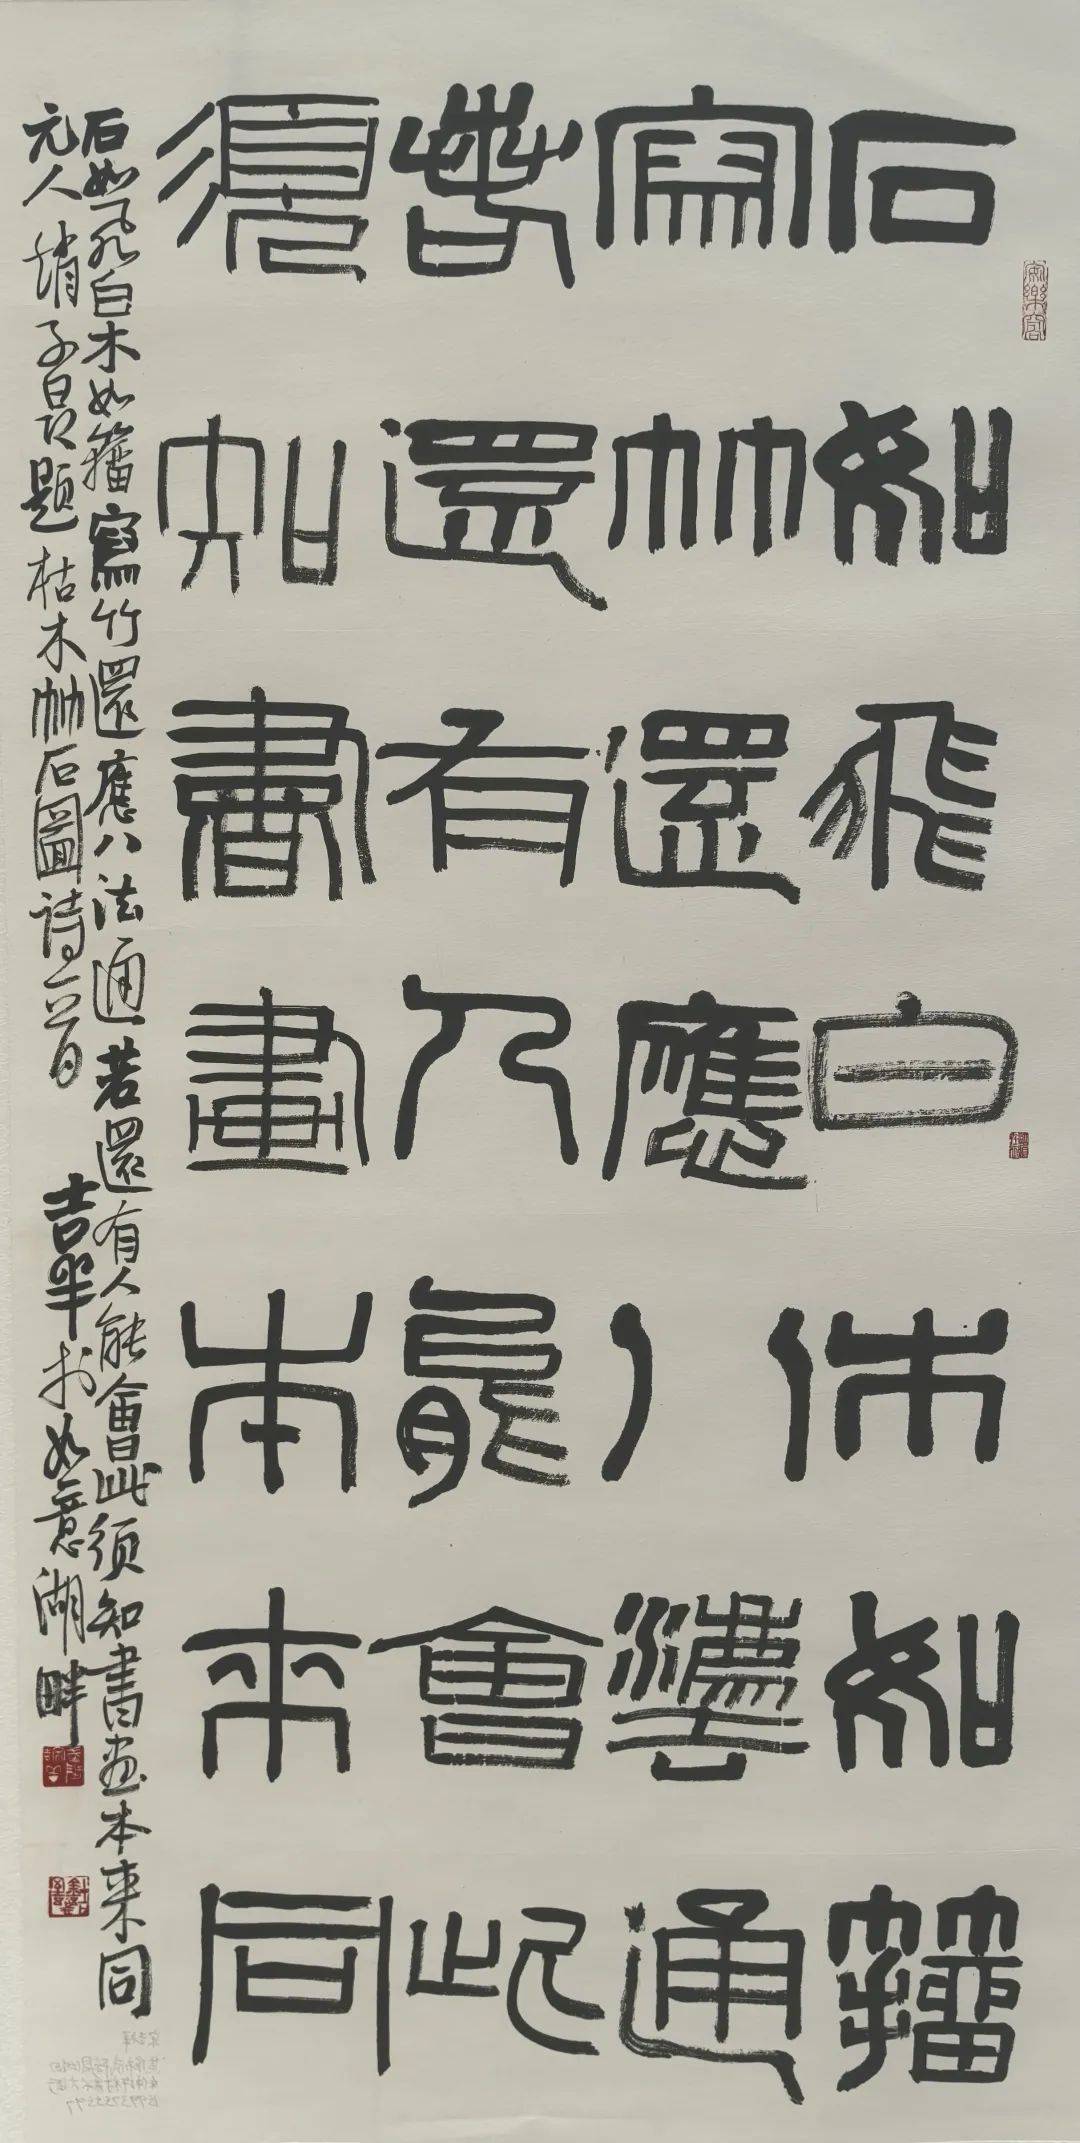 石如飛白木如籀
寫竹還應八法通
若還有人能會此
須知書畫本來同
石如飛白木如籀寫竹還應八法通若還有人能會此須知書画本来同
元人趙子昂題枯木竹石圖诗一首 吉華於如意湖畔